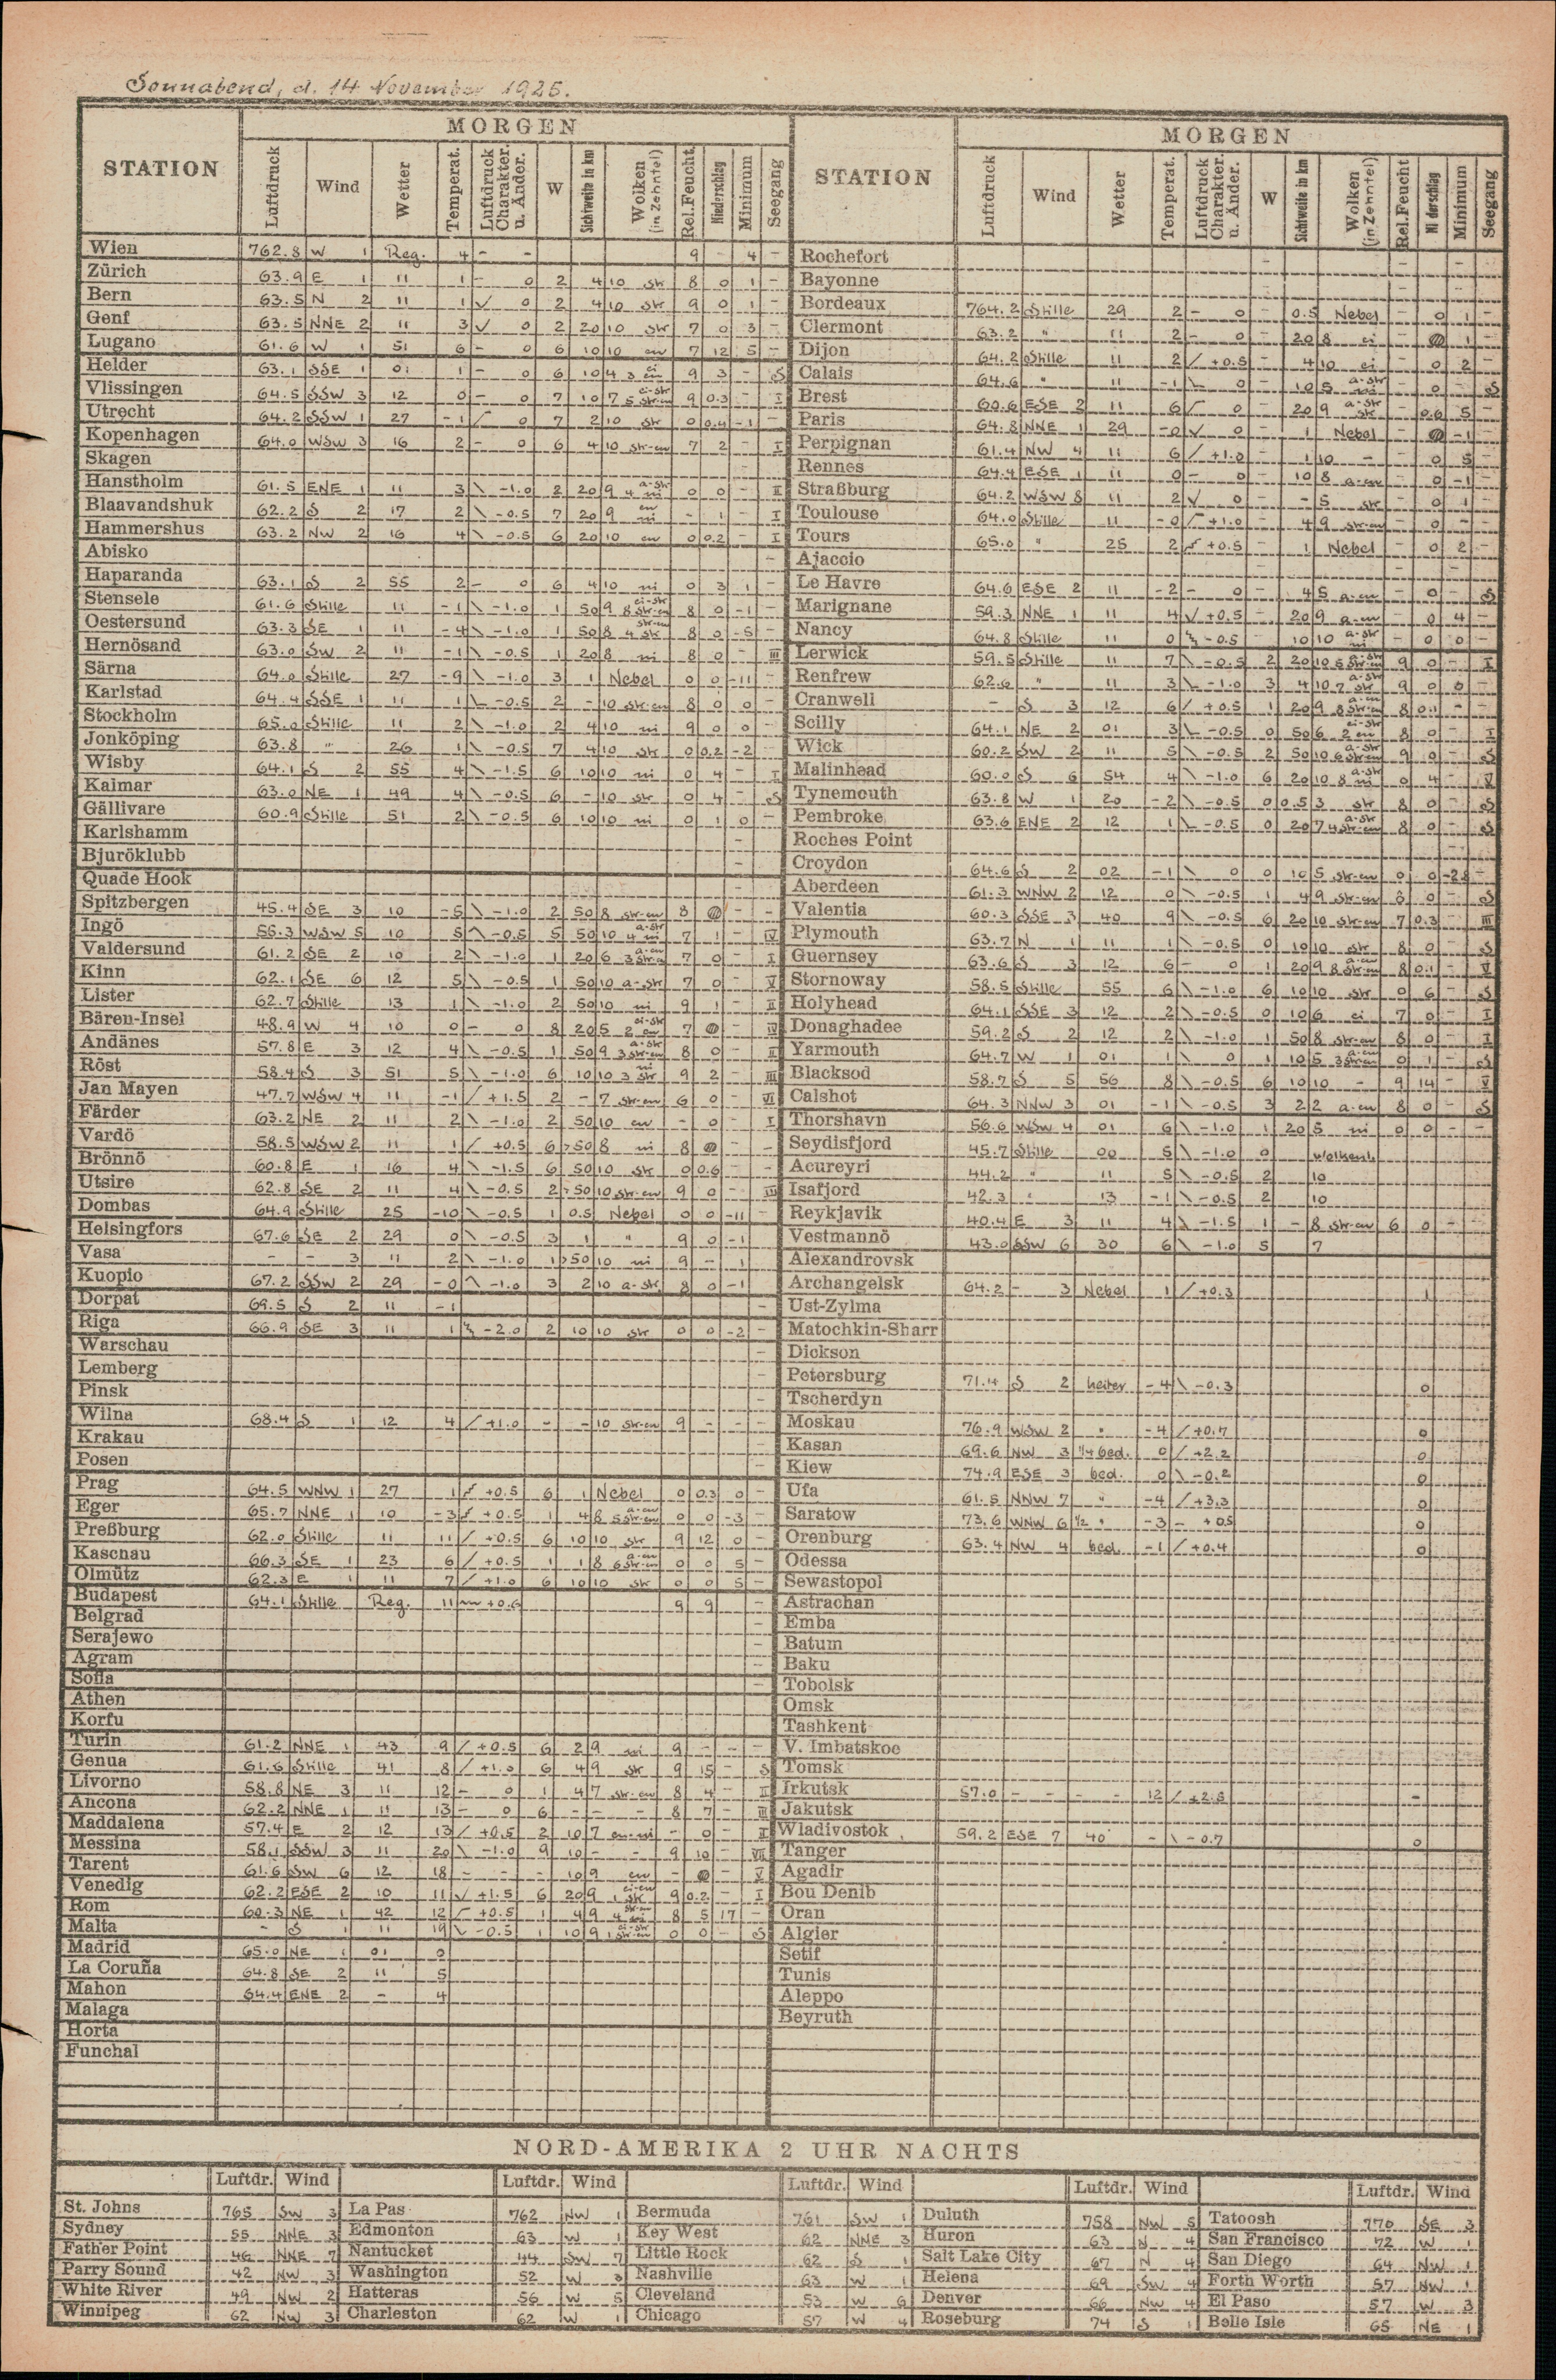 Sonnabend, d. 14 November 1925.
MORGEN
STATION Luftdruck Wind Wetter Temperat. Luftdruck Charakter. u. Änder. W Sichtweite in km Wolken (in Zehntel) Rel. Feucht. Niederschlag Minimum Seegang
Wien 762.8 W 1 Reg. 4 - - 9 - 4 -
Zürich 63.9 E 1 11 1 - 0 2 4 10 str 8 0 1 -
Bern 63.5 N 2 11 1 0 2 4 10 str 9 0 1 -
Genf 63.5 NNE 2 11 3 0 2 20 10 str 7 0 3 -
Lugano 61.6 W 1 51 6 - 0 6 10 10 cu 7 12 5 -
Helder 63.1 SSE 1 01 1 - 0 6 10 4 3 ci cu 9 3 - S
Vlissingen 64.5 SSW 3 12 0 - 0 7 10 7 5 ci-str str-cu 9 0.3 - I
Utrecht 64.2 SSW 1 27 -1 0 7 2 10 str 0 0.4 -1 -
Kopenhagen 64.0 WSW 3 16 2 - 0 6 4 10 str-cu 7 2 - I
Skagen
Hanstholm 61.5 ENE 1 11 3 \ -1.0 2 20 9 4 a-str ni 0 0 - II
Blaavandshuk 62.2 S 2 17 2 \ -0.5 7 20 9 cu ni - 1 - I
Hammershus 63.2 NW 2 16 4 \ -0.5 6 20 10 cu 0 0.2 - I
Abisko
Haparanda 63.1 S 2 55 2 - 0 6 4 10 ni 0 3 1 -
Stensele 61.6 Stille 11 -1 \ -1.0 1 50 9 8 ci-str str-cu 8 0 -1 -
Oestersund 63.3 SE 1 11 -4 \ -1.0 1 50 8 4 str-cu str 8 0 -5 -
Hernösand 63.0 SW 2 11 -1 \ -0.5 1 20 8 ni 8 0 - III
Särna 64.0 Stille 27 -9 \ -1.0 3 1 Nebel 0 0 -11 -
Karlstad 64.4 SSE 1 11 1 -0.5 2 - 10 str-cu 8 0 0 -
Stockholm 65.0 Stille 11 2 \ -1.0 2 4 10 ni 9 0 0 -
Jonköping 63.8 " 26 1 \ -0.5 7 4 10 str 0 0.2 -2 -
Wisby 64.1 S 2 55 4 \ -1.5 6 10 10 ni 0 4 - I
Kalmar 63.0 NE 1 49 4 \ -0.5 6 - 10 str 0 4 - S
Gällivare 60.9 Stille 51 2 \ -0.5 6 10 10 ni 0 1 0 -
Karlshamm
Bjuröklubb
Quade Hook
Spitzbergen 45.4 SE 3 10 -5 \ -1.0 2 50 8 str-cu 8 - -
Ingö 55.3 WSW 5 10 5 -0.5 5 50 10 4 a-str ni 7 1 - IV
Valdersund 61.2 SE 2 10 2 \ -1.0 1 20 6 3 a-cu str-cu 7 0 - I
Kinn 62.1 SE 6 12 5 \ -0.5 1 50 10 a-str 7 0 - V
Lister 62.7 Stille 13 1 \ -1.0 2 50 10 ni 9 1 - II
Bären-Insel 48.9 W 4 10 0 - 0 8 20 5 2 ci-str cu 7 - IV
Andänes 57.8 E 3 12 4 \ -0.5 1 50 9 3 a-str str-cu 8 0 - II
Röst 58.4 S 3 51 5 \ -1.0 6 10 10 3 ni str 9 2 - III
Jan Mayen 47.7 WSW 4 11 -1 / +1.5 2 - 7 str-cu 6 0 - VI
Färder 63.2 NE 2 11 2 \ -1.0 2 50 10 cu - 0 - I
Vardö 58.5 WSW 2 11 1 / +0.5 6 >50 8 ni 8 -
Brönnö 60.8 E 1 16 4 \ -1.5 6 50 10 str 0 0.6 -
Utsire 62.8 SE 2 11 4 \ -0.5 2 >50 10 str-cu 9 0 - III
Dombas 64.9 Stille 25 -10 \ -0.5 1 0.5 Nebel 0 0 -11 -
Helsingfors 67.6 SE 2 29 0 \ -0.5 3 1 " 9 0 -1
Vasa - - 3 11 2 \ -1.0 1 >50 10 ni 9 - 1
Kuopio 67.2 SSW 2 29 -0 -1.0 3 2 10 a-str 8 0 -1
Dorpat 69.5 S 2 11 -1 -
Riga 66.9 SE 3 11 1 -2.0 2 10 10 str 0 0 -2 -
Warschau
Lemberg
Pinsk
Wilna 68.4 S 1 12 4 / +1.0 - - 10 str-cu 9 - - -
Krakau
Posen
Prag 64.5 WNW 1 27 1 +0.5 6 1 Nebel 0 0.3 0 -
Eger 65.7 NNE 1 10 -3 +0.5 1 4 8 5 a-cu str-cu 0 0 -3 -
Preßburg 62.0 Stille 11 11 / +0.5 6 10 10 str 9 12 0 -
Kaschau 66.3 SE 1 23 6 / +0.5 1 1 8 6 a-cu str-cu 0 0 5 -
Olmütz 62.3 E 1 11 7 / +1.0 6 10 10 str 0 0 5 -
Budapest 64.1 Stille Reg. 11 +0.6 9 9 -
Belgrad
Serajewo
Agram
Sofia
Athen
Korfu
Turin 61.2 NNE 1 43 9 / +0.5 6 2 9 ni 9 - - -
Genua 61.6 Stille 41 8 / +1.0 6 4 9 str 9 15 - S
Livorno 58.8 NE 3 11 12 - 0 1 4 7 str-cu 8 4 - II
Ancona 62.2 NNE 1 11 13 - 0 6 - - - 8 7 - III
Maddalena 57.4 E 2 12 13 / +0.5 2 10 7 cu-ni - 0 - II
Messina 58.1 SSW 3 11 20 \ -1.0 9 10 - - 9 10 - VII
Tarent 61.6 SW 6 12 18 - - - 10 9 cu - - V
Venedig 62.2 ESE 2 10 11 +1.5 6 20 9 1 ci-cu str 9 0.2 - I
Rom 60.3 NE 1 42 12 +0.5 1 4 9 4 8 5 17 -
Malta - S 1 11 19 \ -0.5 1 10 9 1 ci-str str-cu 0 0 - S
Madrid 65.0 NE 1 01 0
La Coruña 64.8 SE 2 11 5
Mahon 54.4 ENE 2 - 4
Malaga
Horta
Funchal
MORGEN
STATION Luftdruck Wind Wetter Temperat. Luftdruck Charakter. u. Änder. W Sichtweite in km Wolken (in Zehntel) Rel. Feucht Ni derschlag Minimum Seegang
Rochefort
Bayonne
Bordeaux 764.2 Stille 29 2 - 0 - 0.5 Nebel - 0 1 -
Clermont 63.2 " 11 2 - 0 - 20 8 ci - 1 -
Dijon 64.2 Stille 11 2 / +0.5 - 4 10 ci - 0 2 -
Calais 64.6 " 11 -1 0 - 10 5 a-str - 0 - S
Brest 60.6 ESE 2 11 6 0 - 20 9 a-str str - 0.6 5 -
Paris 64.8 NNE 1 29 -0 0 - 1 Nebel - -1 -
Perpignan 61.4 NW 4 11 6 / +1.0 - 1 10 - - 0 5 -
Rennes 64.4 ESE 1 11 0 - 0 - 10 8 a-cu - 0 -1 -
Straßburg 64.2 WSW 8 11 2 0 - - 5 str - 0 1 -
Toulouse 64.0 Stille 11 -0 +1.0 - 4 9 str-cu - 0 - -
Tours 65.0 " 25 2 +0.5 - 1 Nebel - 0 2 -
Ajaccio
Le Havre 64.6 ESE 2 11 -2 - 0 - 4 5 a-cu - 0 - S
Marignane 59.3 NNE 1 11 4 +0.5 - 20 9 a-cu 0 4 -
Nancy 64.8 Stille 11 0 -0.5 10 10 a-str ni - 0 0 -
Lerwick 59.5 Stille 11 7 \ -0.5 2 20 10 5 a-str str-cu 9 0 - I
Renfrew 62.6 " 11 3 -1.0 3 4 10 7 a-str str 9 0 0 -
Cranwell - S 3 12 6 / +0.5 1 20 9 8 a-cu str-cu 8 0.1 - -
Scilly 64.1 NE 2 01 3 -0.5 0 50 6 2 ci-str cu 8 0 - I
Wick 60.2 SW 2 11 5 \ -0.5 2 50 10 6 a-str str-cu 9 0 - S
Malinhead 60.0 S 6 54 4 \ -1.0 6 20 10 8 a-str ni 0 4 - V
Tynemouth 63.8 W 1 20 -2 \ -0.5 0 0.5 3 str 8 0 - S
Pembroke 63.6 ENE 2 12 1 -0.5 0 20 7 4 a-str str-cu 8 0 - S
Roches Point
Croydon 64.6 S 2 02 -1 \ 0 0 10 5 str-cu 0 0 -2.8 -
Aberdeen 61.3 WNW 2 12 0 \ -0.5 1 4 9 str-cu 8 0 - S
Valentia 60.3 SSE 3 40 9 \ -0.5 6 20 10 str-cu 7 0.3 - III
Plymouth 63.7 N 1 11 1 \ -0.5 0 10 10 str 8 0 - S
Guernsey 63.6 S 3 12 6 - 0 1 20 9 8 a-cu str-cu 8 0.1 - V
Stornoway 58.5 Stille 55 6 \ -1.0 6 10 10 str 0 6 - S
Holyhead 64.1 SSE 3 12 2 \ -0.5 0 10 6 ci 7 0 - I
Donaghadee 59.2 S 2 12 2 \ -1.0 1 50 8 str-cu 8 0 - I
Yarmouth 64.7 W 1 01 1 \ 0 1 10 5 3 a-cu str-cu 0 1 - S
Blacksod 58.7 S 5 56 8 \ -0.5 6 10 10 - 9 14 - V
Calshot 64.3 NNW 3 01 -1 \ -0.5 3 2 2 a-cu 8 0 - S
Thorshavn 56.6 WSW 4 01 6 \ -1.0 1 20 5 ni 0 0 - -
Seydisfjord 45.7 Stille 00 5 \ -1.0 0 wolkenl.
Acureyri 44.2 " 11 5 \ -0.5 2 10
Isafjord 42.3 " 13 -1 \ -0.5 2 10
Reykjavik 40.4 E 3 11 4 \ -1.5 1 - 8 str-cu 6 0 - -
Vestmannö 43.0 SSW 6 30 6 \ -1.0 5 7
Alexandrovsk
Archangelsk 64.2 - 3 Nebel 1 / +0.3 1
Ust-Zylma
Matochkin-Sharr
Dickson
Petersburg 71.4 S 2 heiter -4 \ -0.3 0
Tscherdyn
Moskau 76.9 WSW 2 " -4 / +0.7 0
Kasan 69.6 NW 3 1/4 bed. 0 / +2.2 0
Kiew 74.9 ESE 3 bed. 0 \ -0.2 0
Ufa 61.5 NNW 7 " -4 / +3.3 0
Saratow 73.6 WNW 6 1/2 " -3 - +0.5 0
Orenburg 63.4 NW 4 bed. -1 / +0.4 0
Odessa
Sewastopol
Astrachan
Emba
Batum
Baku
Tobolsk
Omsk
Tashkent
V. Imbatskoe
Tomsk
Irkutsk 57.0 - - - - 12 / +2.5 -
Jakutsk
Wladivostok 59.2 ESE 7 40 - \ -0.7 0
Tanger
Agadir
Bou Denib
Oran
Algier
Setif
Tunis
Aleppo
Beyruth
NORD-AMERIKA 2 UHR NACHTS
Luftdr. Wind Luftdr. Wind Luftdr. Wind Luftdr. Wind Luftdr. Wind
St. Johns 765 SW 3 La Pas 762 NW 1 Bermuda 761 SW 1 Duluth 758 NW 5 Tatoosh 770 SE 3
Sydney 55 NNE 3 Edmonton 63 W 1 Key West 62 NNE 3 Huron 63 N 4 San Francisco 72 W 1
Father Point 46 NNE 7 Nantucket 44 SW 7 Little Rock 62 S 1 Salt Lake City 67 N 4 San Diego 64 NW 1
Parry Sound 42 NW 3 Washington 52 W 3 Nashville 63 W 1 Helena 69 SW 4 Forth Worth 57 NW 1
White River 49 NW 2 Hatteras 56 W 5 Cleveland 53 W 6 Denver 66 NW 4 El Paso 57 W 3
Winnipeg 62 NW 3 Charleston 62 W 1 Chicago 57 W 4 Roseburg 74 S 1 Belle Isle 65 NE 1